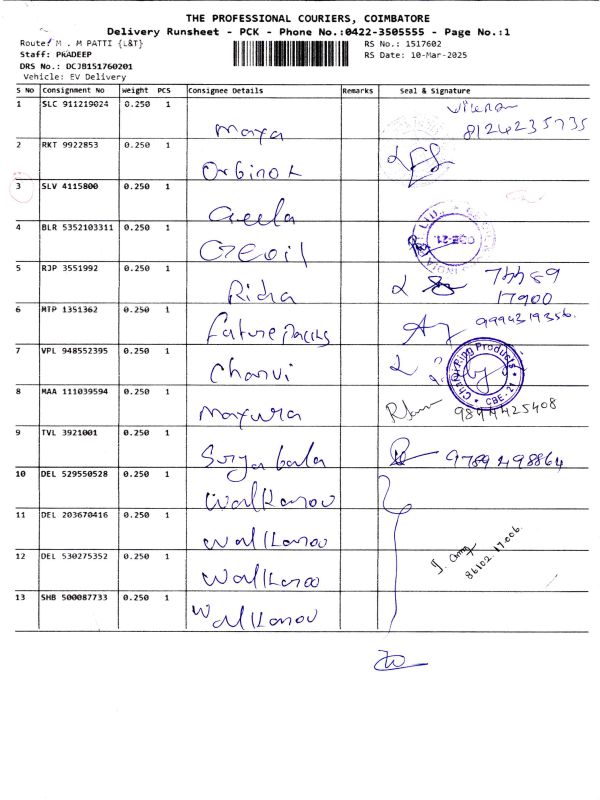 THE PROFESSIONAL COURIERS, COIMBATORE
Delivery Runsheet - PCK - Phone No.:0422-3505555 - Page No.:1
Route: M . M PATTI {L&T}
RS No.: 1517602
Staff: PRADEEP
RS Date: 10-Mar-2025
DRS No.: DCJB151760201
Vehicle: EV Delivery
S No Consignment No Weight PCS Consignee Details Remarks Seal & Signature
1 SLC 911219024 0.250 1 Maya
8124235735
2 RKT 9922853 0.250 1
3 SLV 4115800 0.250 1 Geela
4 BLR 5352103311 0.250 1
CBE-21.
5 RJP 3551992 0.250 1 Richa
17900
6 MTP 1351362 0.250 1 Future
9994319356.
7 VPL 948552395 0.250 1 Charvi
Products CBE - 21
8 MAA 111039594 0.250 1 Mayura
9894425408
9 TVL 3921001 0.250 1 Surya bala 9789498864
10 DEL 529550528 0.250 1
11 DEL 203670416 0.250 1
86102.17006.
12 DEL 530275352 0.250 1
13 SHB 500087733 0.250 1